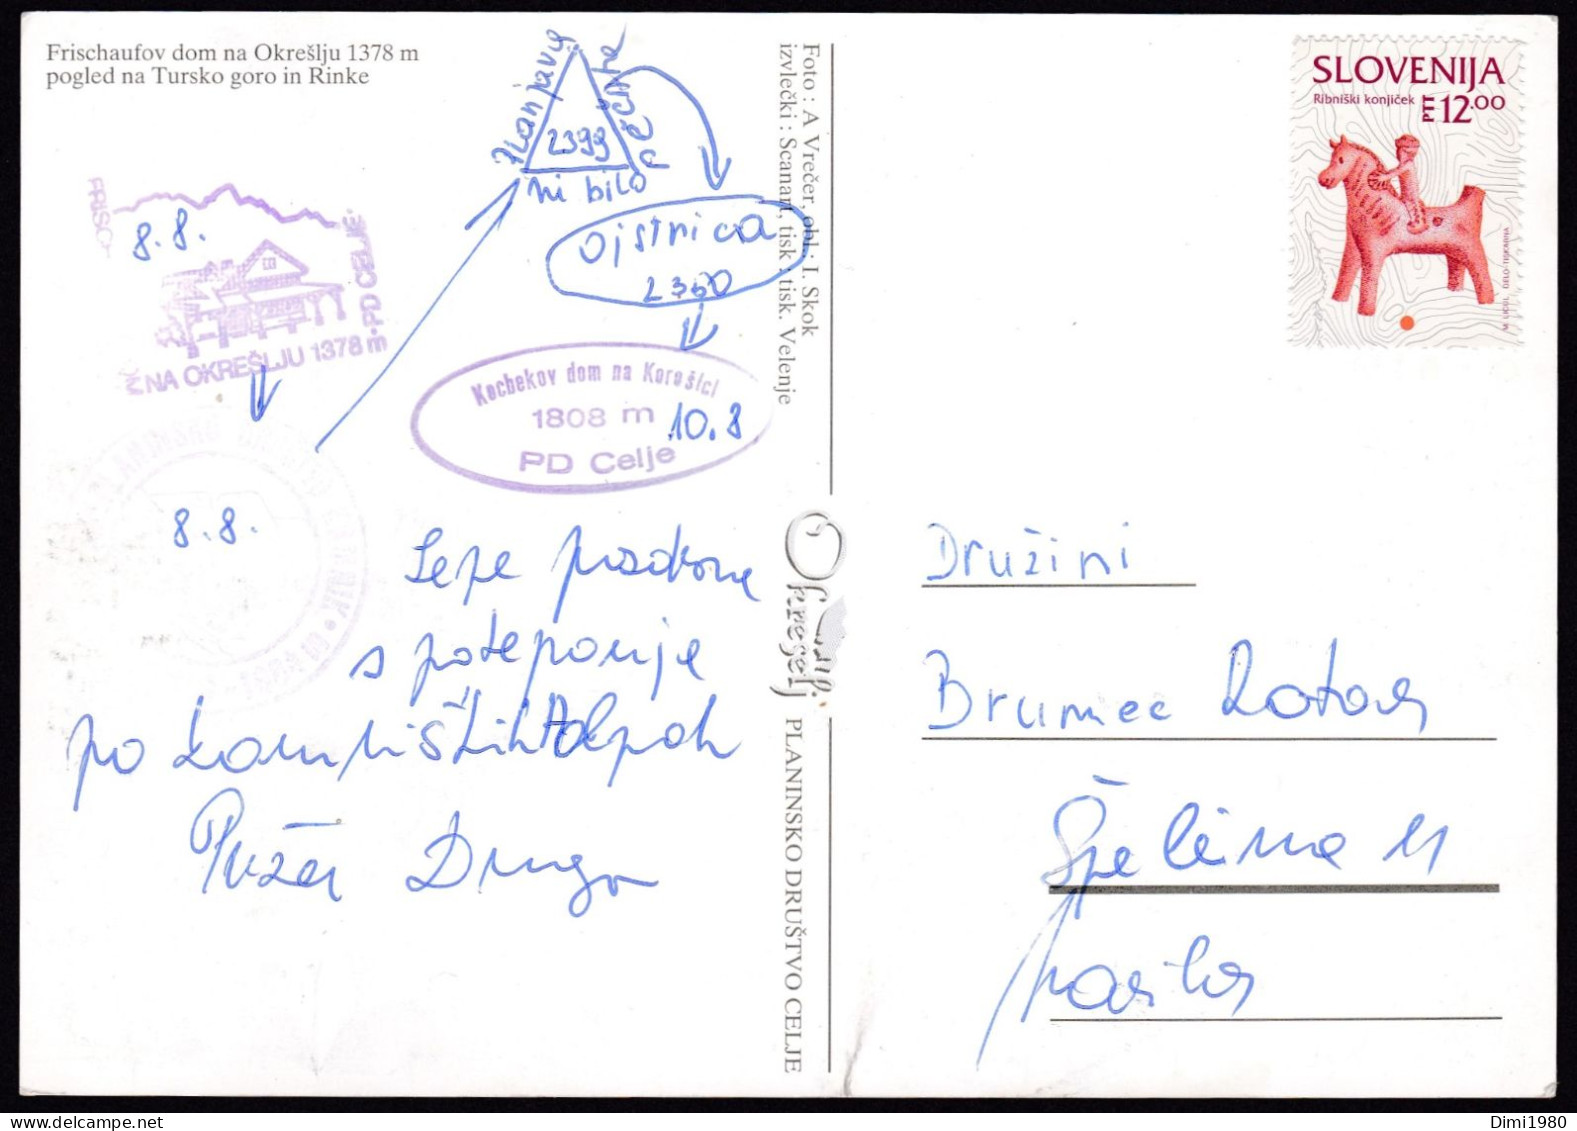 Frischaufov dom na Okrešlju 1378 m
pogled na Tursko goro in Rinke
Planjava
2399
ni bilo
pečata
Ojstrica
2350
8.8.
FRISC
NA OKREŠLJU 1378 m
PD CELJE
Kocbekov dom na Korošici
1808 m
PD Celje
10.8
8.8.
Lepe pozdrave
s potepanja
po Kamniških Alpah
Foto : A Vrečer, obl.: I. Skok
izvlečki : Scanart, tisk : tisk. Velenje
Okrešelj
PLANINSKO DRUŠTVO CELJE
SLOVENIJA
Ribniški konjiček
PTT 12.00
Družini
Brumec Rotar
Dimi1980